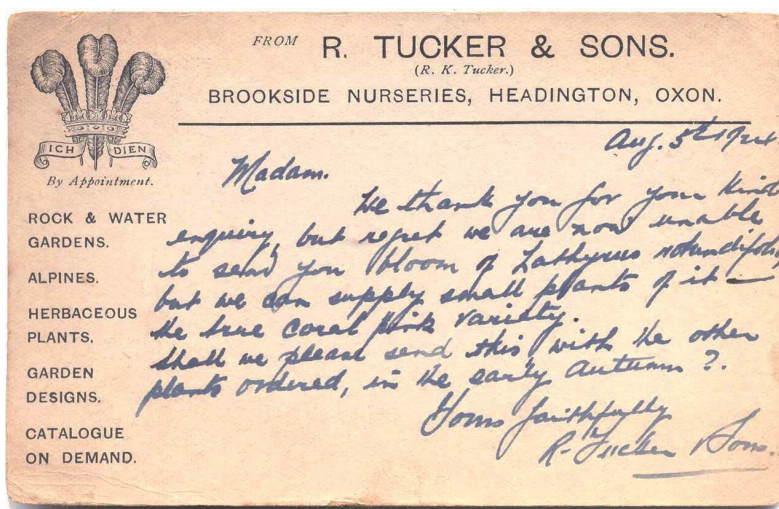 FROM R. TUCKER & SONS.
(R. K. Tucker.)
BROOKSIDE NURSERIES, HEADINGTON, OXON.
ICH DIEN
By Appointment.
ROCK & WATER
GARDENS.
ALPINES.
HERBACEOUS
PLANTS.
GARDEN
DESIGNS.
CATALOGUE
ON DEMAND.
Aug. 5th
Madam.
We thank you for your kind
enquiry, but regret we are now unable
to send you bloom of Lathyrus rotundifolius
but we can supply small plants of it —
the true Coral Pink variety.
Shall we please send this with the other
plants ordered, in the early Autumn?.
Yours faithfully
R. Tucker & Sons.